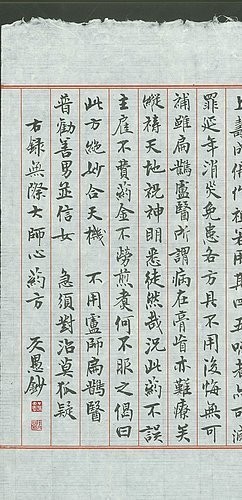 罪延年消災免患各方具不用後悔無可
補雖扁鵲盧醫所謂病在膏肓亦難療矣
縱禱天地祝神明悉徒然哉況此葯不誤
主雇不費葯金不勞煎煮何不服之偈曰
此方絕妙合天機 不用盧師扁鵲醫
普勸善男並信女 急須對治莫狐疑
右録無際大師心葯方 愚鈔